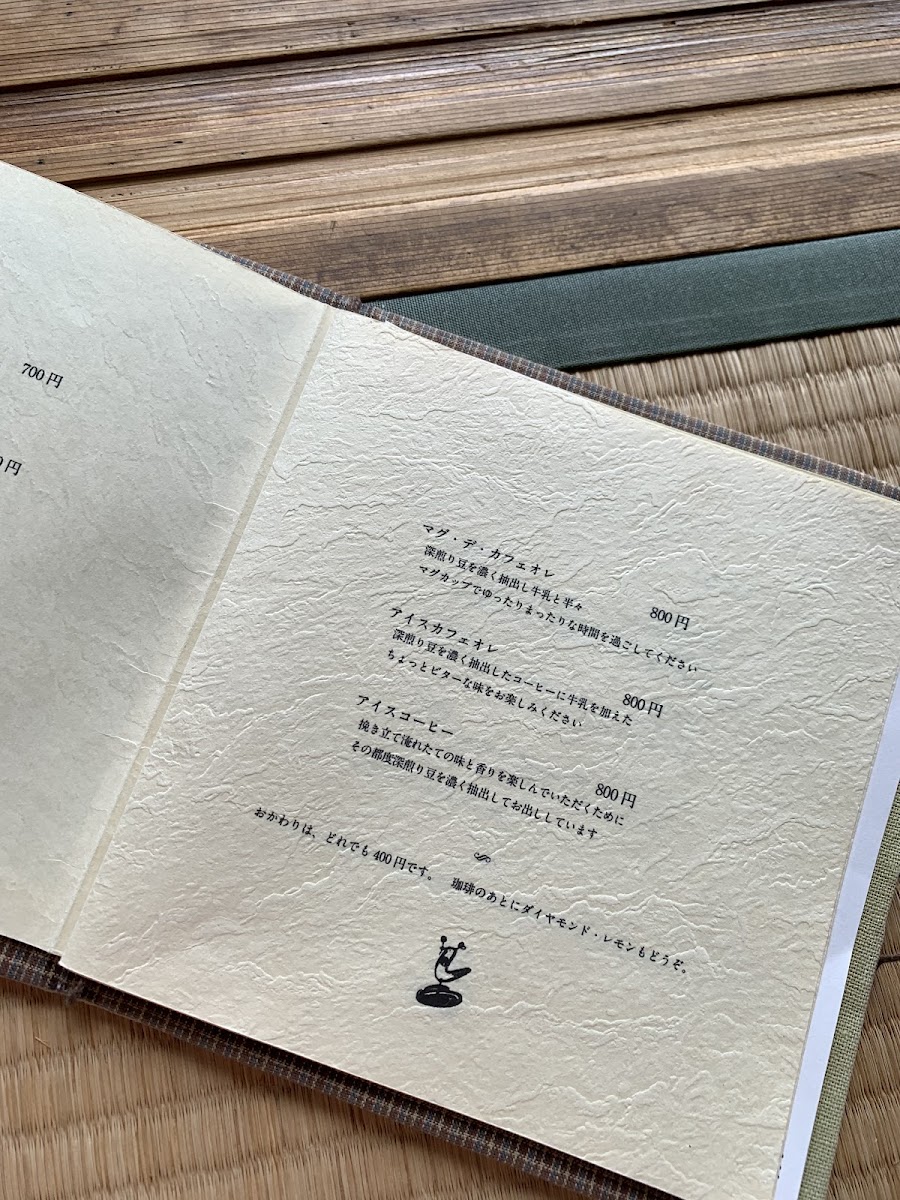 700円
0円
マグ・デ・カフェオレ 800円
深煎り豆を濃く抽出し牛乳と半々
マグカップでゆったりまったりな時間を過ごしてください
アイスカフェオレ 800円
深煎り豆を濃く抽出したコーヒーに牛乳を加えた
ちょっとビターな味をお楽しみください
アイスコーヒー 800円
挽き立て淹れたての味と香りを楽しんでいただくために
その都度深煎り豆を濃く抽出してお出ししています
おかわりは、どれでも400円です。 珈琲のあとにダイヤモンド・レモンもどうぞ。